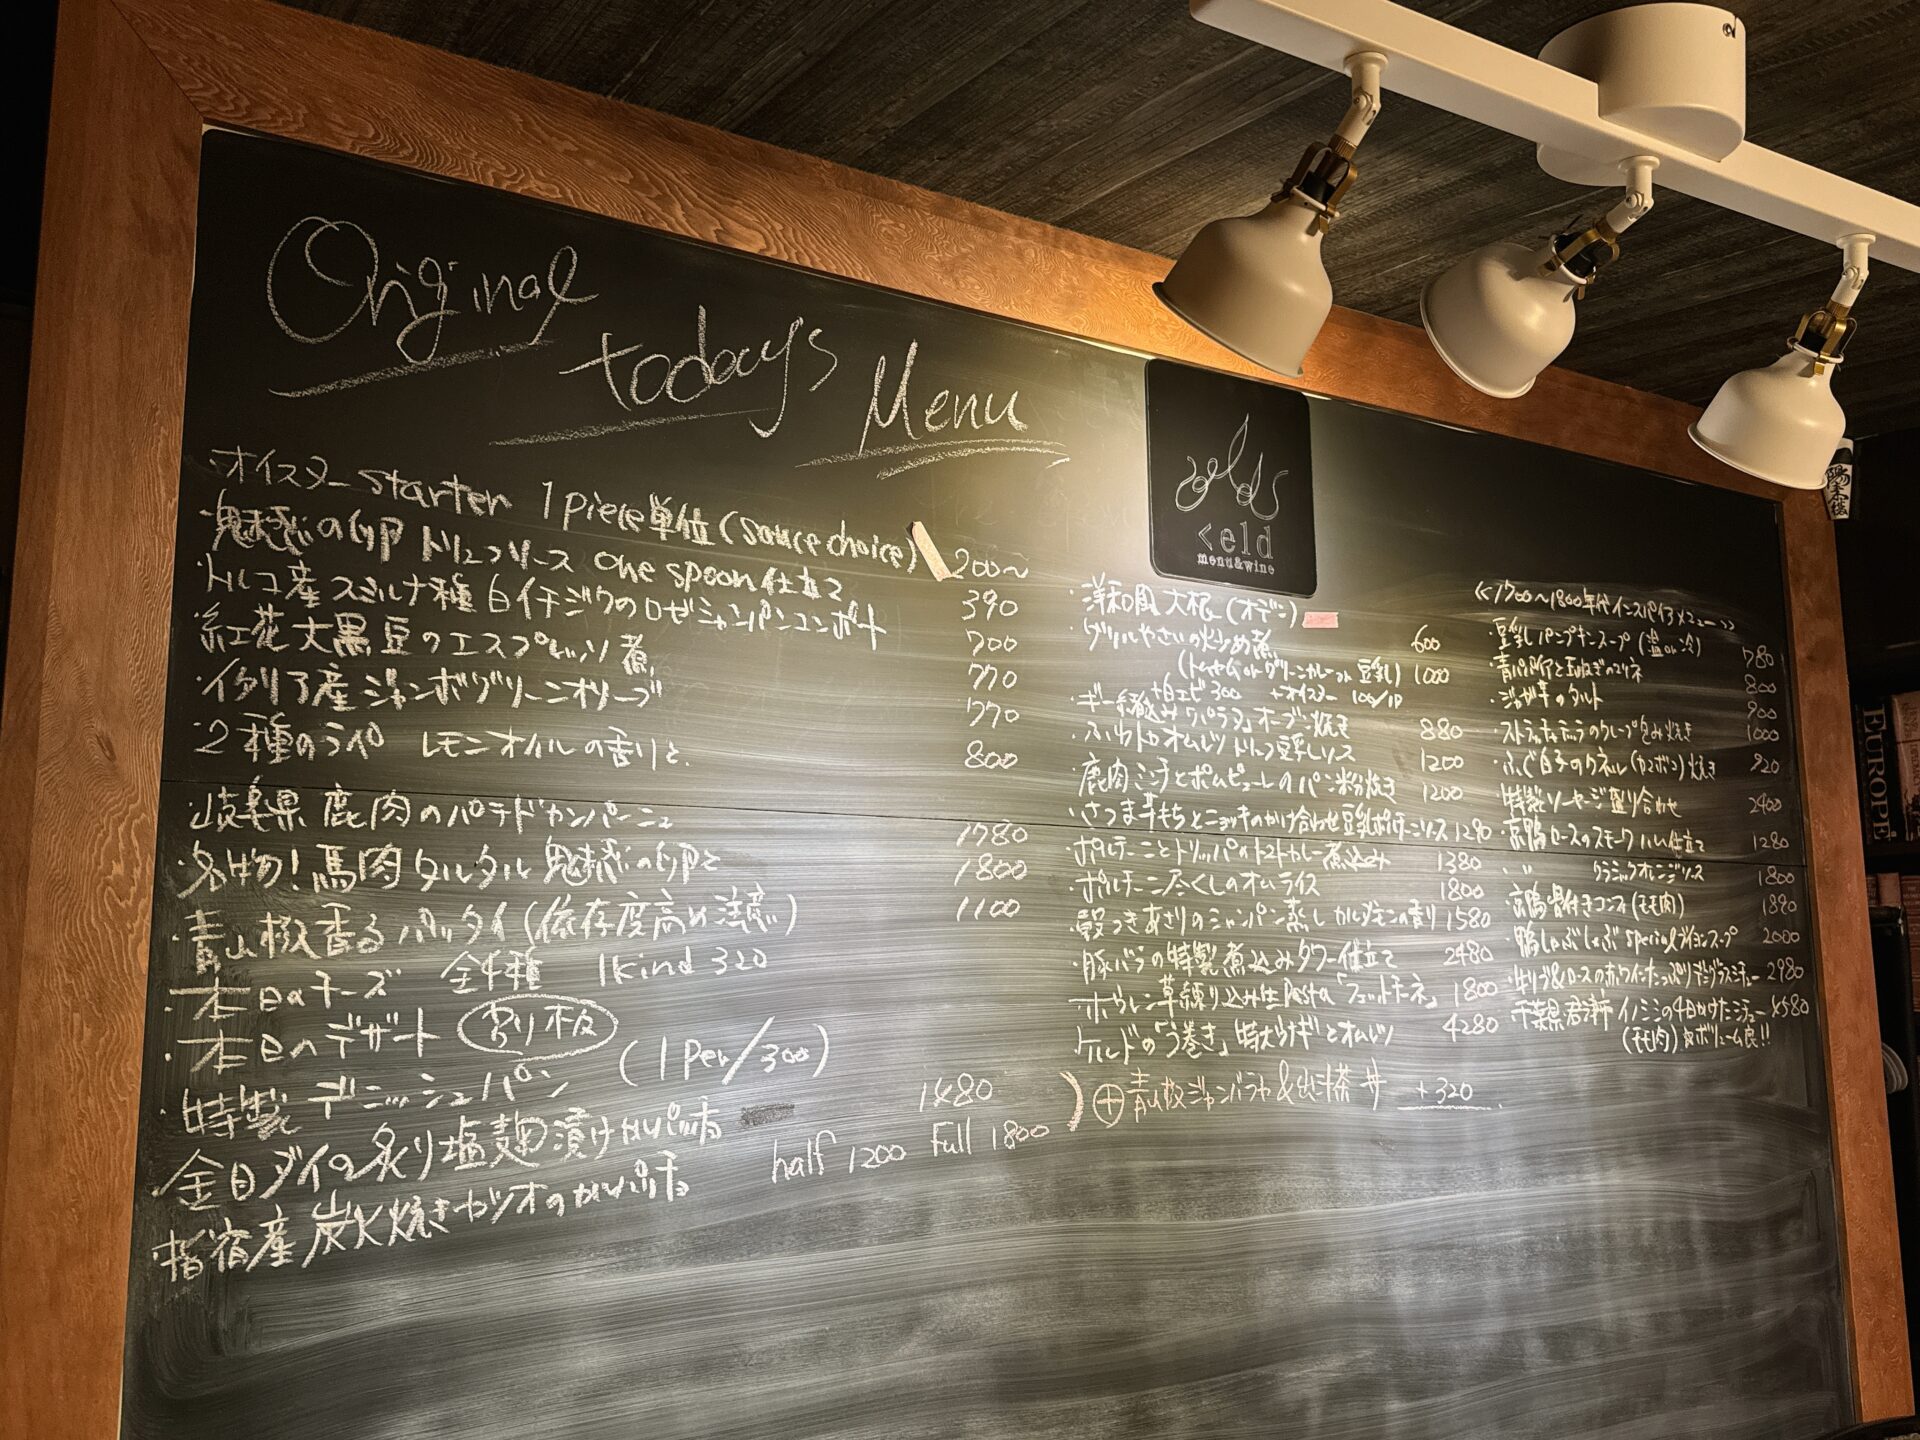 Original
today's
Menu
オイスター starter 1 piece 単位 (sauce choice) 200～
・魅惑の卵 トリュフソース one spoon 仕立て 390
・トルコ産スミルナ種 白イチジクのロゼシャンパンコンポート 700
・紅花大黒豆のエスプレッソ煮 770
・イタリア産ジャンボグリーンオリーブ 770
・2種のラペ レモンオイルの香りと 800
・岐阜県 鹿肉のパテドカンパーニュ 1780
・名物!馬肉タルタル 魅惑の卵と 1800
・青山椒香る パッタイ (依存度高め注意) 1100
・本日のチーズ 全4種 1kind 320
・本日のデザート
・特製 デニッシュパン (1per/300)
・金目ダイの炙り塩麹漬けカルパッチョ 1480
・指宿産 炭火焼きカツオのカルパッチョ half 1200 Full 1800
keld
menu&wine
・洋和風大根 (オデン) 600
・グリルやさいの炒め煮
(トムヤム or グリーンカレー or 豆乳) 1000
+白エビ 300 +オイスター 100/1P
・ギー 「パラタ」オーブン焼き 880
・ふわトロオムレツ トリュフ豆乳ソース 1200
・鹿肉ミンチとポムピューレのパン粉焼き 1200
・さつま芋もちとニョッキのかけ合わせ豆乳ポルチーニソース 1290
・ポルチーニとトリッパのトマトカレー煮込み 1380
・ポルチーニ尽くしのオムライス 1800
・殻つきあさりのシャンパン蒸し カルダモンの香り 1580
・豚バラの特製煮込みタワー仕立て 2480
・ホウレン草練り込み生pasta「フェットチーネ」 1800
・ケルドの「う巻き」特大ウナギとオムレツ 4280
⊕青山椒ジャンバラヤ&出汁茶 丼 +320
≪1700～1800年代インスパイアメニュー≫
・豆乳パンプキンスープ (温 or 冷) 780
・青パパイヤと玉ねぎのマリネ 800
・ジャガ芋のタルト 900
・ストラッチャテッラのクレープ包み焼き 1000
・ふぐ白子のクネル 焼き 920
・特製ソーセージ盛り合わせ 2400
・京鴨ロースのスモークハム仕立て 1280
・〃 クラシックオレンジソース 1800
・京鴨骨付きコンフィ (モモ肉) 1890
・鴨しゃぶしゃぶ specialブイヨンスープ 2000
・牛リブ&ロースの赤ワインたっぷりデミグラスシチュー 2980
・千葉県君津市 イノシシの4日かけたシチュー 4580
(モモ肉) ボリューム良!!
EUROPE